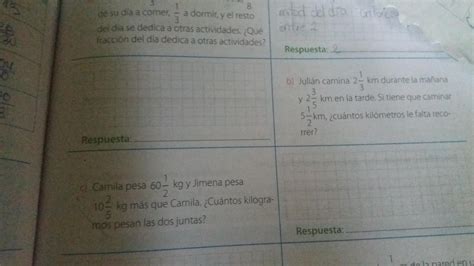 de su día a comer, 1/3 a dormir, y el resto
del día se dedica a otras actividades. ¿Qué
fracción del día dedica a otras actividades?
Respuesta:
c) Camila pesa 60 1/2 kg y Jimena pesa
10 2/5 kg más que Camila. ¿Cuántos kilogra-
mos pesan las dos juntas?
entre 2
Respuesta:
b) Julián camina 2 1/3 km durante la mañana
y 2 3/5 km en la tarde. Si tiene que caminar
5 1/2 km, ¿cuántos kilómetros le falta reco-
rrer?
Respuesta:
de la pared en